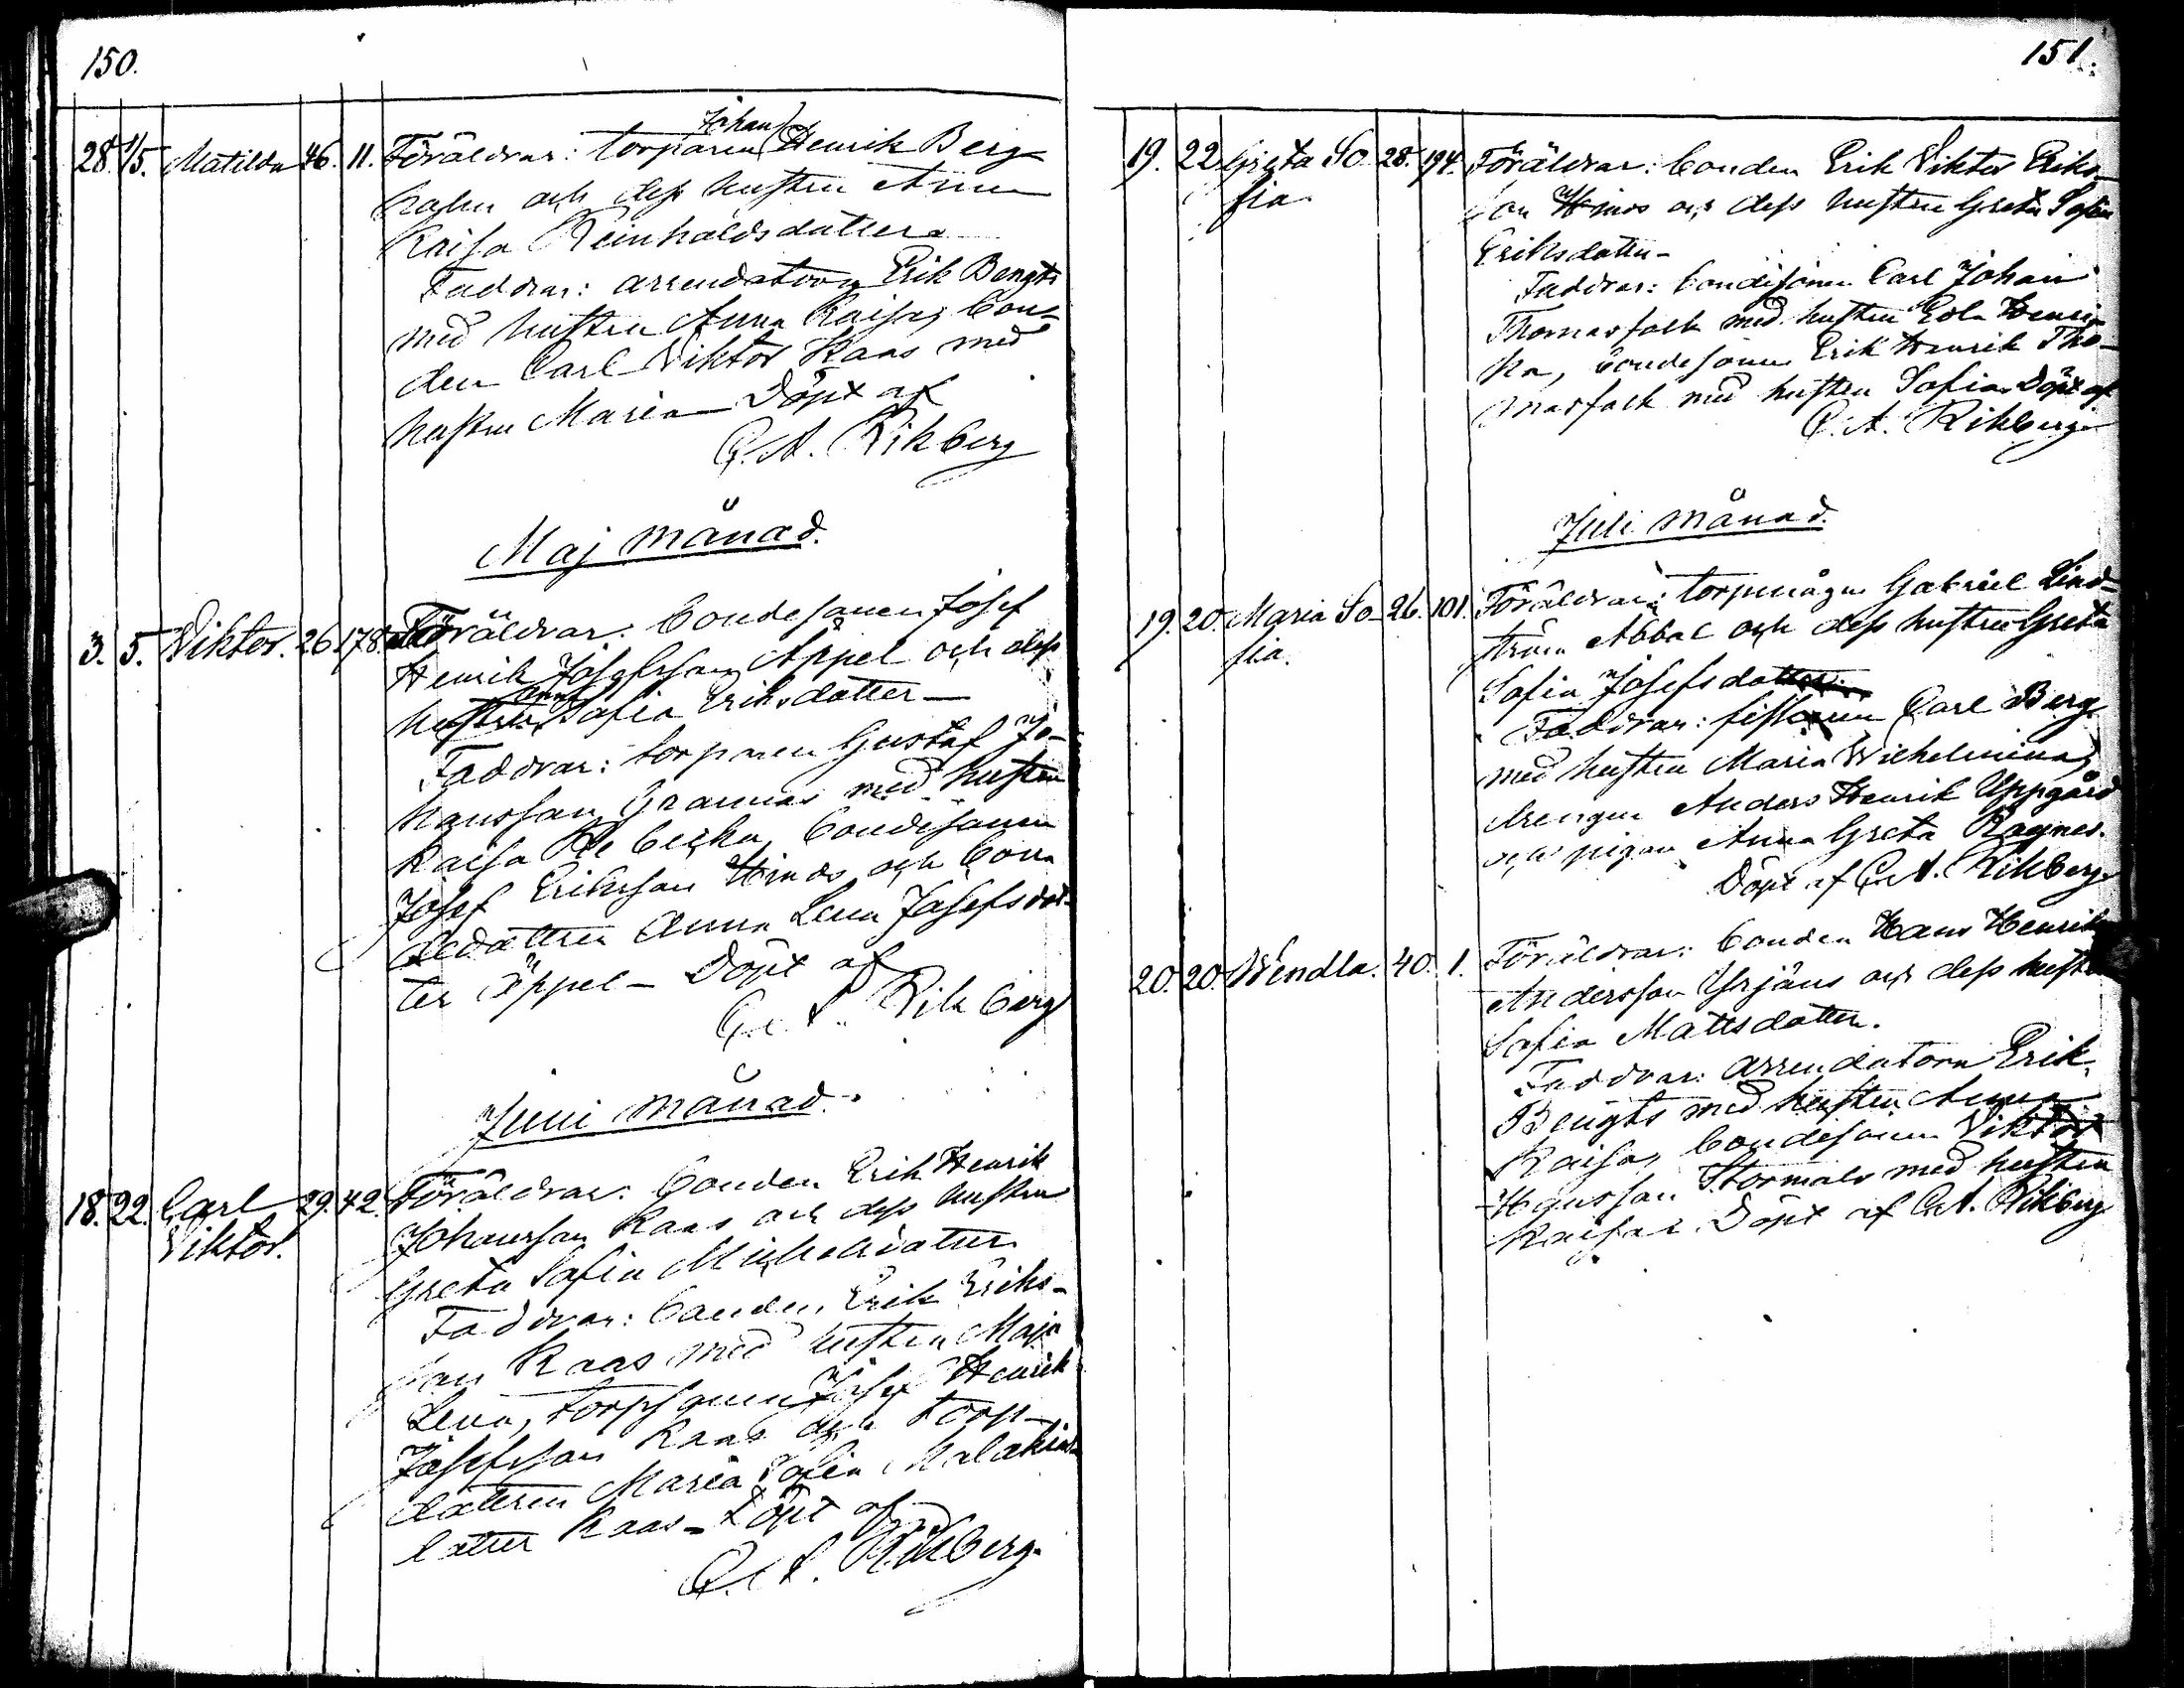 150.
28. 1/5. Matilda 46. 11. Föräldrar: torparen Johan Henrik Berg
och dess hustru Anna
Kaisa Reinholdsdotter
Faddrar: arrendatorn Erik Bengts
med hustru Anna Kaisa, bon-
den Carl Viktor Kaas med
hustru Maria Döpt af
C. A. Rikberg
Maj månad.
3. 5. Viktor. 26. 178. Föräldrar: bondesonen Josef
Henrik Josefsson Äppel och dess
hustru Anna Sofia Eriksdotter —
Faddrar: torparen Gustaf Jo-
hansson Grannas med hustru
Kaisa Rebecka, bondesonen
Josef Eriksson Hinds och bon-
dedottren Anna Lena Josefsdot-
ter Äppel — Döpt af
C. A. Rikberg
Juni månad.
18. 22. Carl 29. 42. Föräldrar: bonden Erik Henrik
Viktor.
Johansson Kaas och dess hustru
Greta Sofia Michelsdotter
Faddrar: bonden Erik Eriks-
son Kaas med hustru Maja
Lena, torpsonen Josef Henrik
Josefsson Kaas och torp-
dottren Maria Sofia
dotter Kaas — Döpt af
C. A. Rikberg.
151.
19. 22. Greta So- 28. 194. Föräldrar: bonden Erik Viktor Eriks-
fia.
son och dess hustru Greta Sofia
Eriksdotter —
Faddrar: bondesonen Carl Johan
Thomasfolk med hustru Eva Henri-
ka, bondesonen Erik Henrik Tho-
masfolk med hustru Sofia Döpt af
C. A. Rikberg
Juli månad.
19. 20. Maria So- 26. 101. Föräldrar: torpmågen Gabriel Lind-
fia.
ström Abbal och dess hustru Greta
Sofia Josefsdotter
Faddrar: Carl Berg
med hustru Maria Wilhelmina,
drengen Anders Henrik Uppgård
och pigan Anna Greta Ragnes.
Döpt af C. A. Rikberg.
20. 20. Wendla. 40. 1. Föräldrar: bonden Hans Henrik
Andersson Yrjäns och dess hustru
Sofia Mattsdotter.
Faddrar: arrendatorn Erik
Bengts med hustru Anna
Kaisa, bondesonen Viktor
Hansson Stormals med hustru
Kaisa. Döpt af C. A. Rikberg